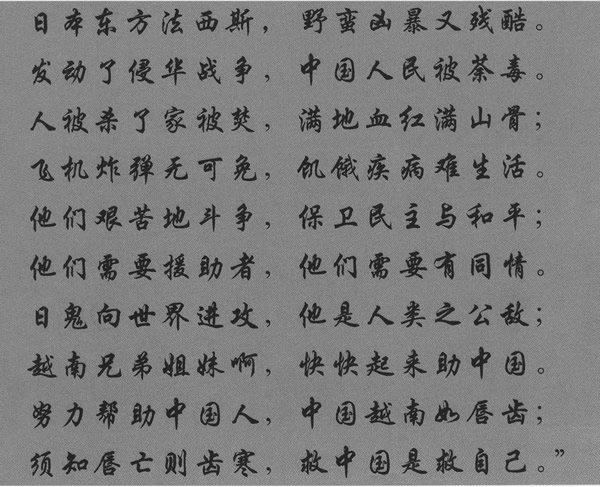 日本东方法西斯，野蛮凶暴又残酷。
发动了侵华战争，中国人民被荼毒。
人被杀了家被焚，满地血红满山骨；
飞机炸弹无可免，饥饿疾病难生活。
他们艰苦地斗争，保卫民主与和平；
他们需要援助者，他们需要有同情。
日鬼向世界进攻，他是人类之公敌；
越南兄弟姐妹啊，快快起来助中国。
努力帮助中国人，中国越南如唇齿；
须知唇亡则齿寒，救中国是救自己。”